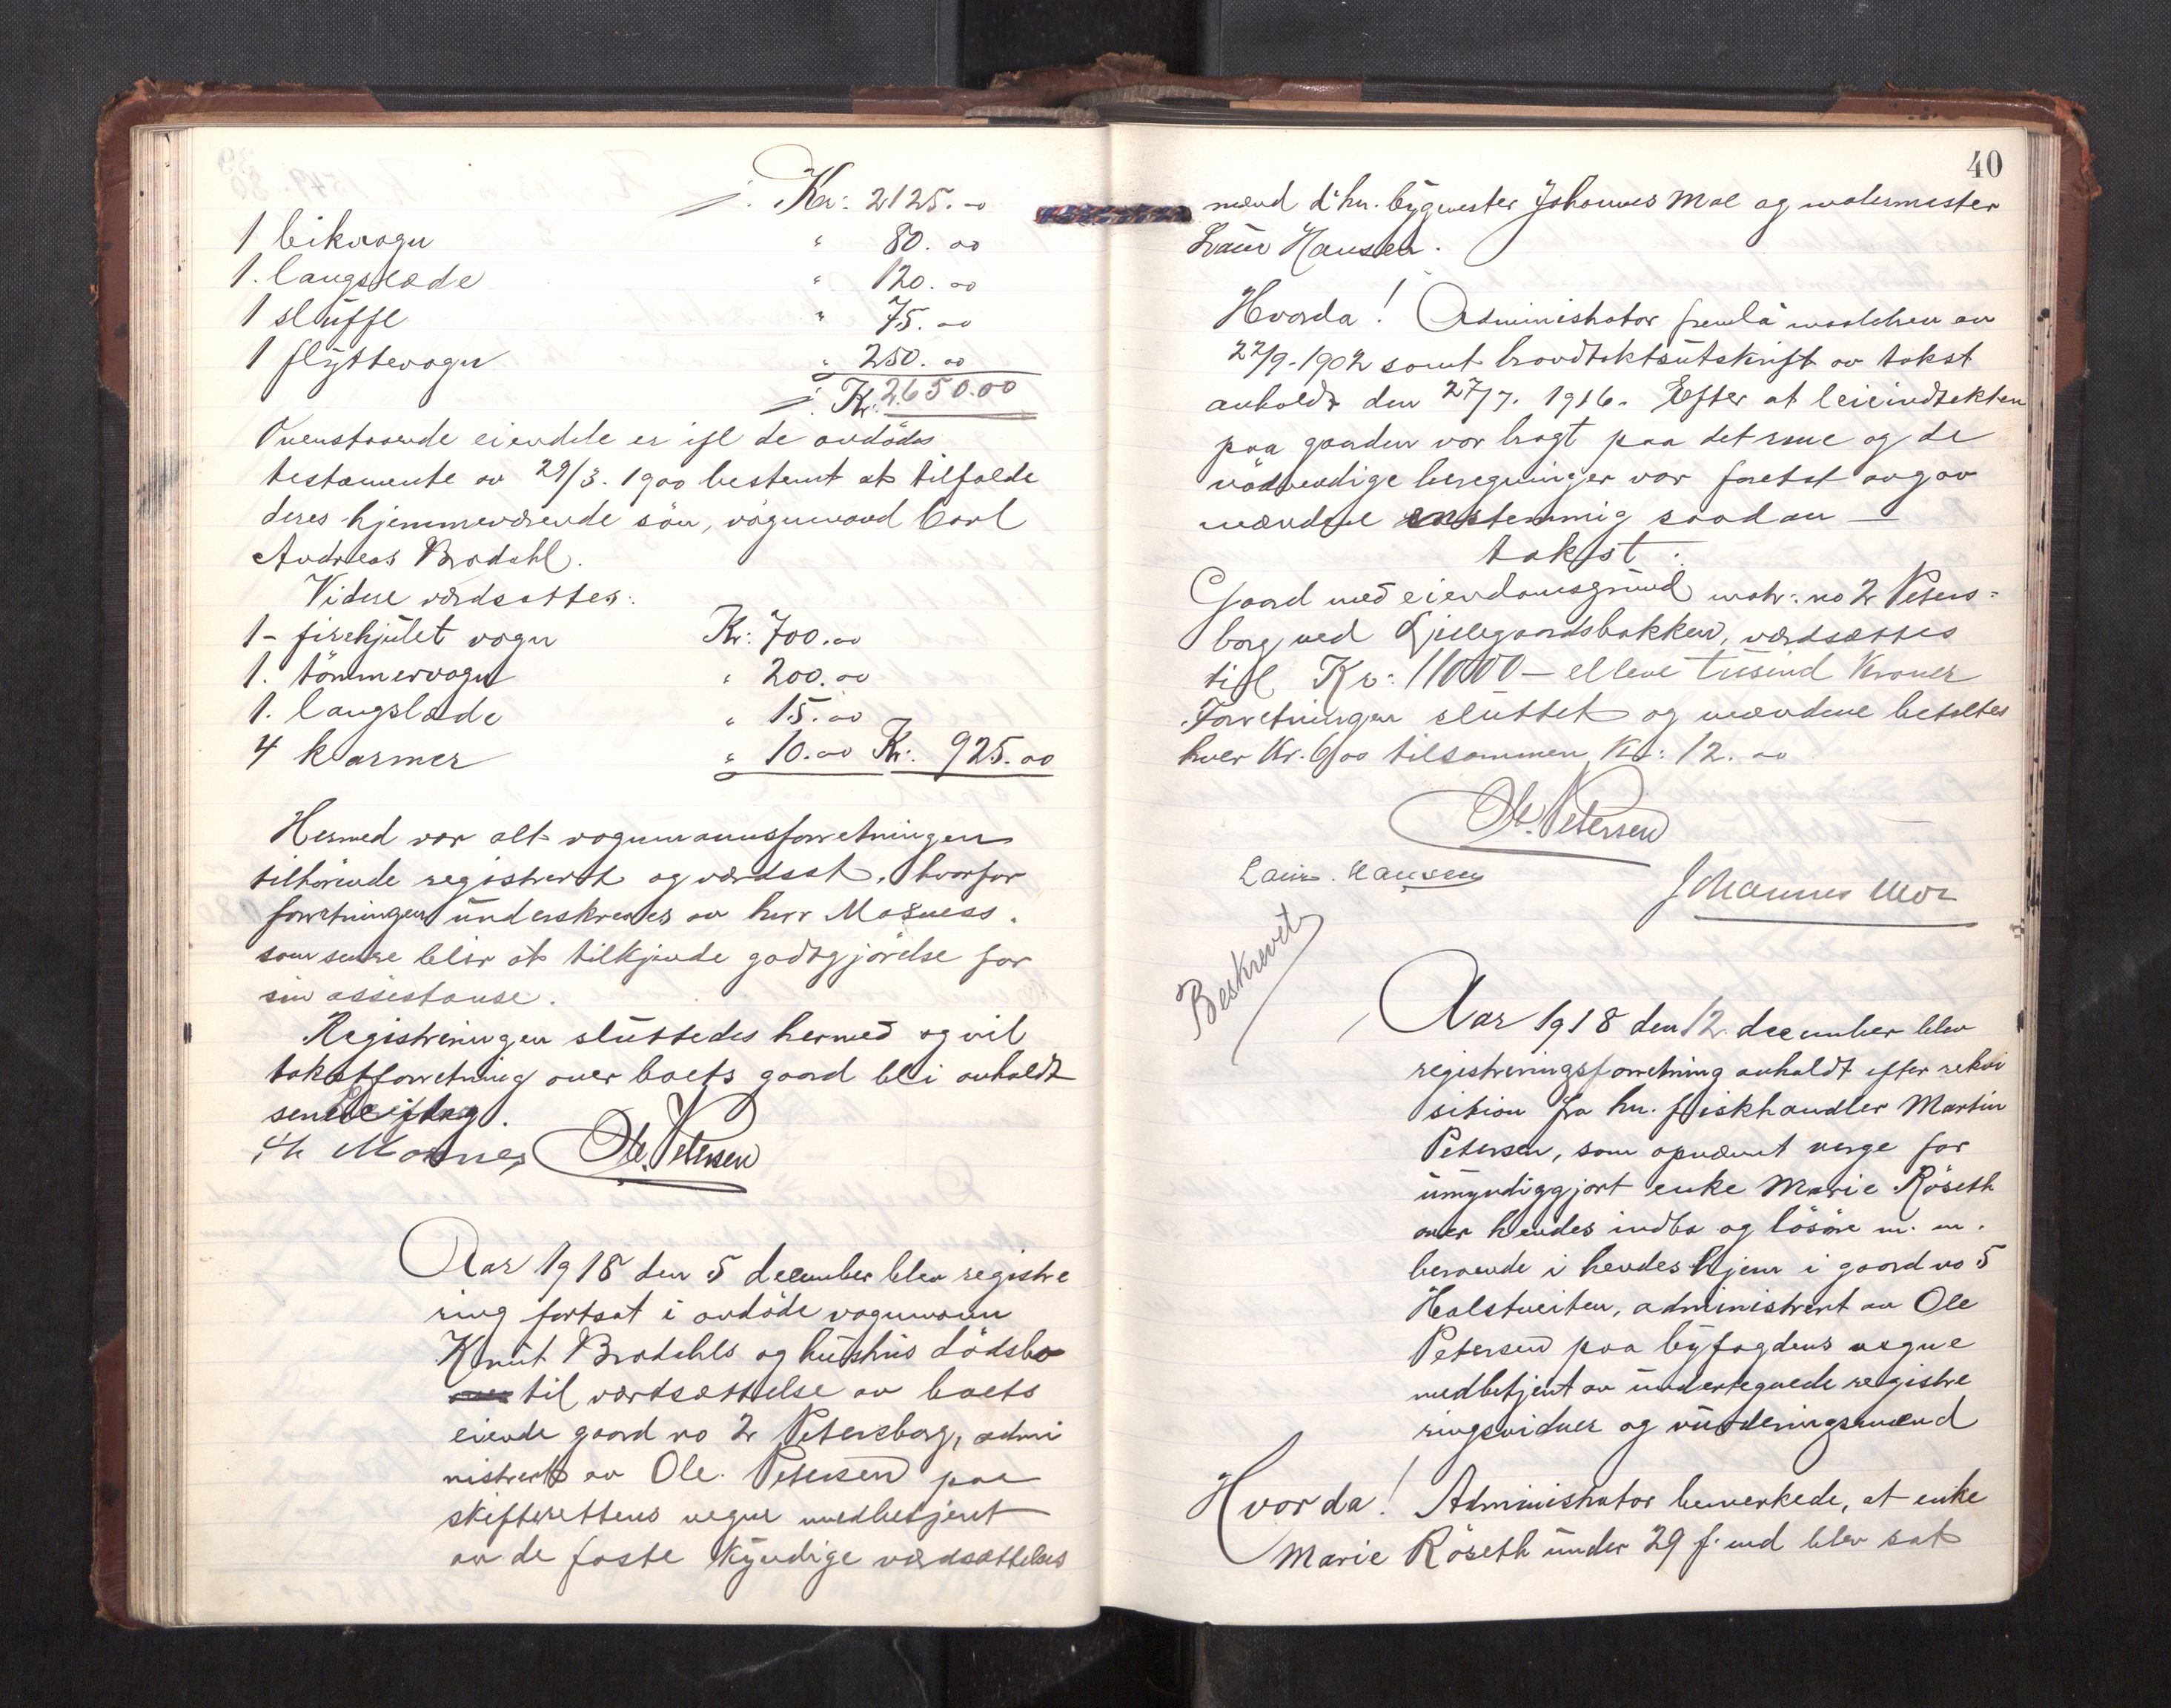 Kr: 2125.00
1 likvogn " 80.00
1. langslæde " 120.00
1 sluffe " 75.00
1 flyttevogn " 250.00
Kr: 2650.00
Ovenstaaende eiendele er ifl de avdødes
testamente av 29/3. 1900 bestemt at tilfalde
deres hjemmeværende søn, vognmand Carl
Andreas Brodahl.
Videre værdsattes:
1- firehjulet vogn Kr: 700.00
1. tømmervogn " 200.00
1. langslæde " 15.00
4 karmer " 10.00 Kr: 925.00
Hermed var alt vognmannsforretningen
tilhørende registrert og værdsat, hvorfor
forretningen underskreves av herr Mosness.
som senere blir at tilkjende godtgjørelse for
sin assistanse.
Registreringen sluttedes hermed og vil
takstforretning over boets gaard bli avholdt
senere
Mosnes Ole Petersen
Aar 1918 den 5 december blev registre
ring fortsat i avdøde vognmann
Knut Brodahls og hustrus dødsbo
til værdsættelse av boets
eiende gaard no 2 Petersborg, admi
nistrert av Ole Petersen paa
skifterettens vegne medbetjent
av de faste kyndige værdsættelses
40
mænd d'hrr. bygmester Johannes Moe og malermester
Laur Hansen.
Hvorda! Administrator fremla maalebrev av
22/9-1902 samt branntakstutskrift av takst
avholdt den 27/7. 1916. Efter at leieindtekten
paa gaarden var bragt paa det rene og de
nødvendige beregninger var foretat avgav
mændene enstemmig saadan —
takst.
Gaard med eiendomsgrund matr: no 2 Peters=
borg ved Ljillegaardsbakken, værdsættes
til Kr: 11000 — elleve tusind Kroner
Forretningen sluttet og mændene betaltes
hver Kr. 6,00 tilsammen Kr: 12.00
Ole Petersen
Laur. Hansen
Johannes Moe
Beskrevet
Aar 1918 den 12. december blev
registreringsforretning avholdt efter rekvi
sition fra hr. fiskhandler Martin
Petersen, som opnævnt verge for
umyndiggjort enke Marie Røseth
over hendes indbo og løsøre m. m.
beroende i hendes hjem i gaard no 5
Holstveiten, administrert av Ole
Petersen paa byfogdens vegne
medbetjent av undertegnede registre
ringsvidner og vurderingsmænd
Hvorda! Administrator bemerkede, at enke
Marie Røseth under 29 f. md blev sat